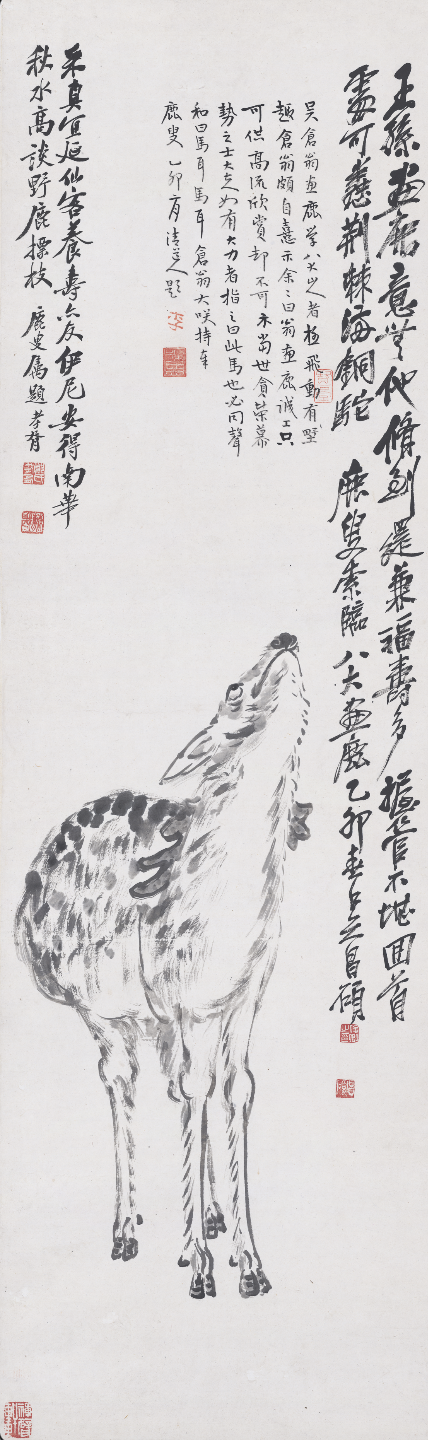 王孫畫鹿意無他脩到還兼福壽多 握管不堪回首
處可憐荆棘滿銅駝 鹿叟索臨八大畫鹿乙卯春吳昌碩
吳倉翁畫鹿學八大山人者極飛動有墅
趣倉翁頗自憙示余余曰翁畫鹿誠工只
可供高流欣賞却不可示當世貪榮慕
勢之士大夫如有大力者指之曰此馬也必同聲
和曰馬耳馬耳倉翁大咲持奉
鹿叟 乙卯二月清道人題
采真宜延仙客養壽亦友伊尼安得南華
秋水高談野鹿摽枝 鹿叟屬題 孝胥